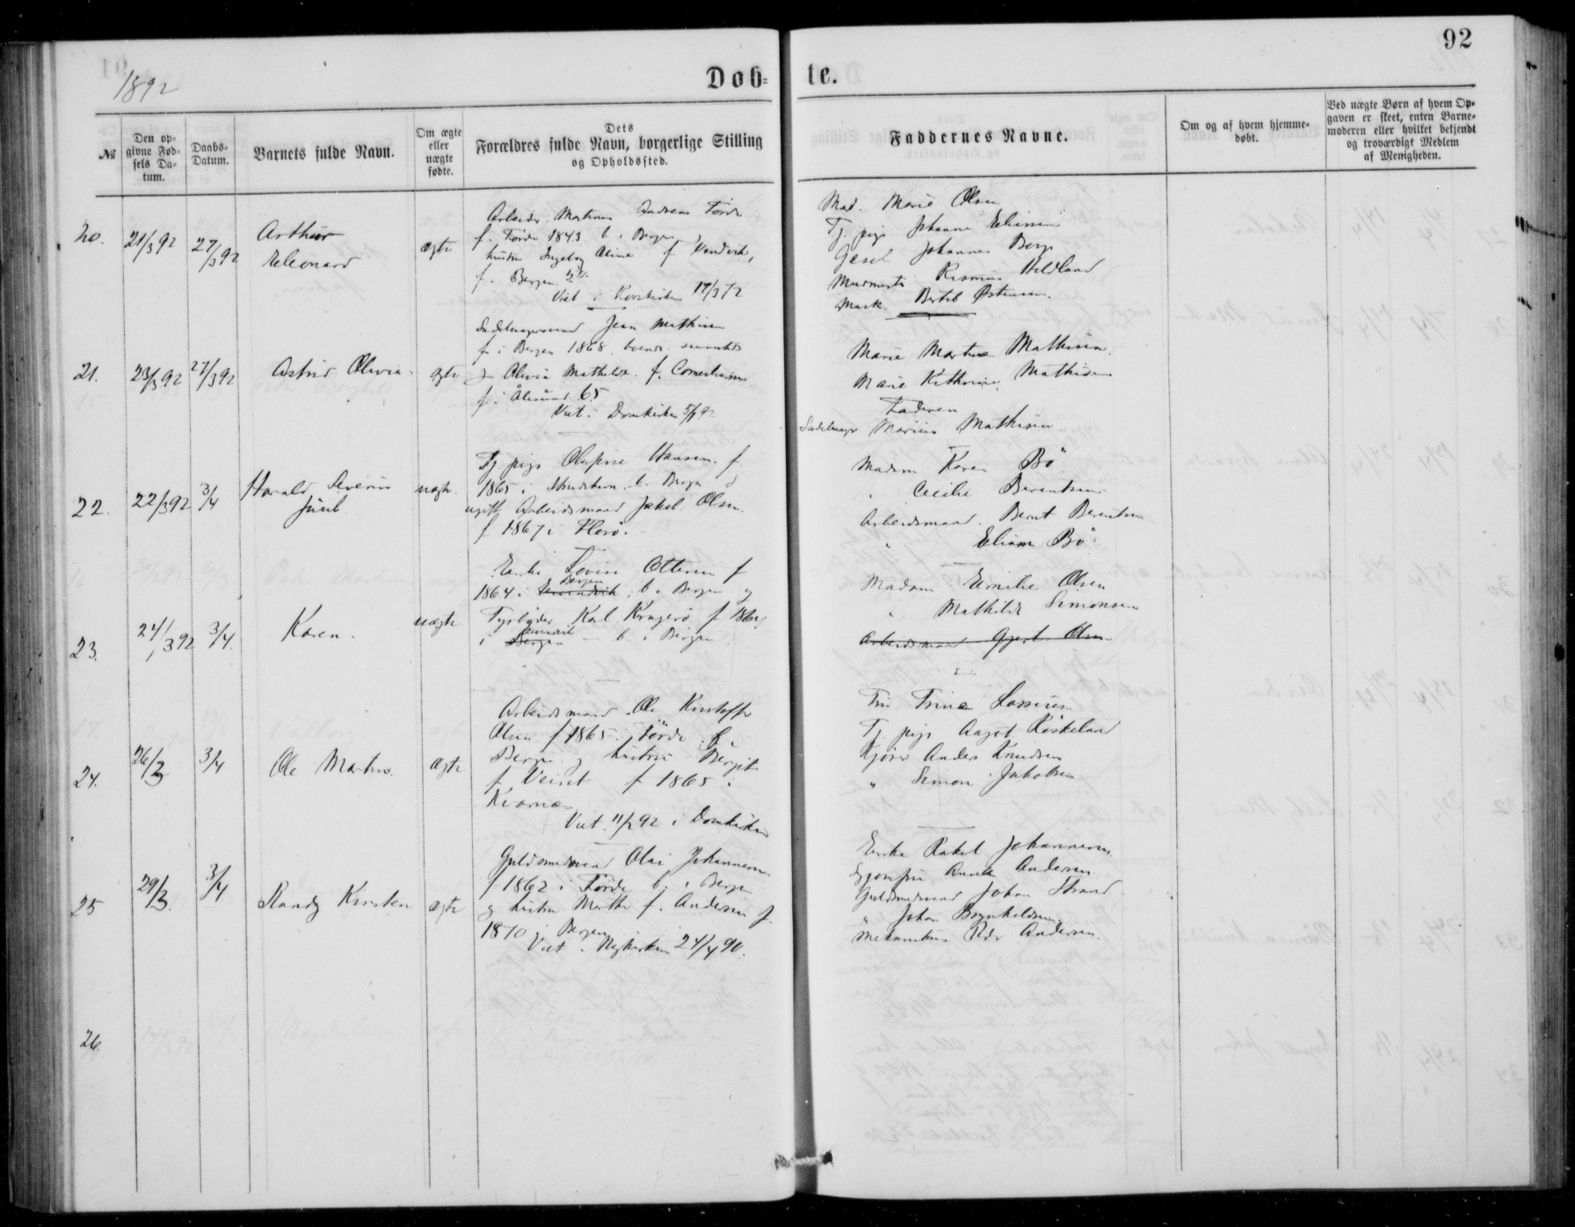 92
1892
Døb-
te.
№
Den op-
givne Fød-
sels Da-
tum.
Daabs-
Datum.
Barnets fulde Navn.
Om ægte
eller
uægte
fødte.
Dets
Forældres fulde Navn, borgerlige Stilling
og Opholdssted.
Faddernes Navne.
Om og af hvem hjemme-
døbt.
Ved uægte Børn af hvem Op-
gaven er skeet, enten Barne-
moderen eller hvilket bekjendt
og troværdigt Medlem
af Menigheden.
20.
21/3 92
27/3 92
Arthur
Eleonard
ægte
Arbeider Martinus Andreas Førde
f. i Førde 1843 b. i Bergen
hustru Ingeborg Aline f.
f. i Bergen
Viet i Korskirken 17/3 72
Mad. Marie Olsen
Tj. pige Johanne Eliassen
Gesel Johannes Berge
Murmester Rasmus Hildland
Bertil Østensen.
21.
23/3 92
27/3 92
Astrid Olivia
ægte
Jean Mathisen
f. i Bergen 1868
Olivia Mathilde f. Corneliussen
f. i Ålesund 65
Viet i Domkirken
Marie Martine Mathisen.
Marie Kathrine Mathisen
Faderen
Sadelmager Marius Mathisen.
22.
22/3 92
3/4
Harald Severin
Juul
uægte.
Tj pige Olufine Hansen. f.
1865 i b. i Bergen
ugift Arbeidsmand Jakob Olsen.
f 1867 i Florø.
Madam Karen Bö
" Cecilie Berentsen
Arbeidsmand Bernt Berentsen
" Elias Bö
23.
24/3 92
3/4
Karen.
uægte
Enke Lovise Ottesen f
1864 i Bergen b. i Bergen og
Fyrbøder Karl f 1864
i Bergen b. i Bergen
Madam Emilie Olsen
" Mathilde Simonsen
Arbeidsmand Gjert Olsen
24.
26/3
3/4
Ole Martin.
ægte
Arbeidsmand Ole Kristoffer
Olsen f 1865 i Førde b. i
Bergen og hustru Bergit
f. f 1865 i
Viet 11/2 92 i Domkirken
Fru Trine Lassesen
Tj. pige Aagot Röskeland
Kjører Anders Knudsen
" Simon Jakobsen
25
29/3.
3/4
Randy Kirsten
ægte
Guldsmedsvend Olai Johannesen
f 1862 i Førde b. i Bergen
og hustru Marthe f. Andersen f.
1870 i Bergen
Viet i Nykirken 24/4 90.
Enke Rakel Johannesen
Anna Andersen
Guldsmedsvend Johan Strand
" Johan Brynhildsen
Mekanikus Peder Andersen.
26.